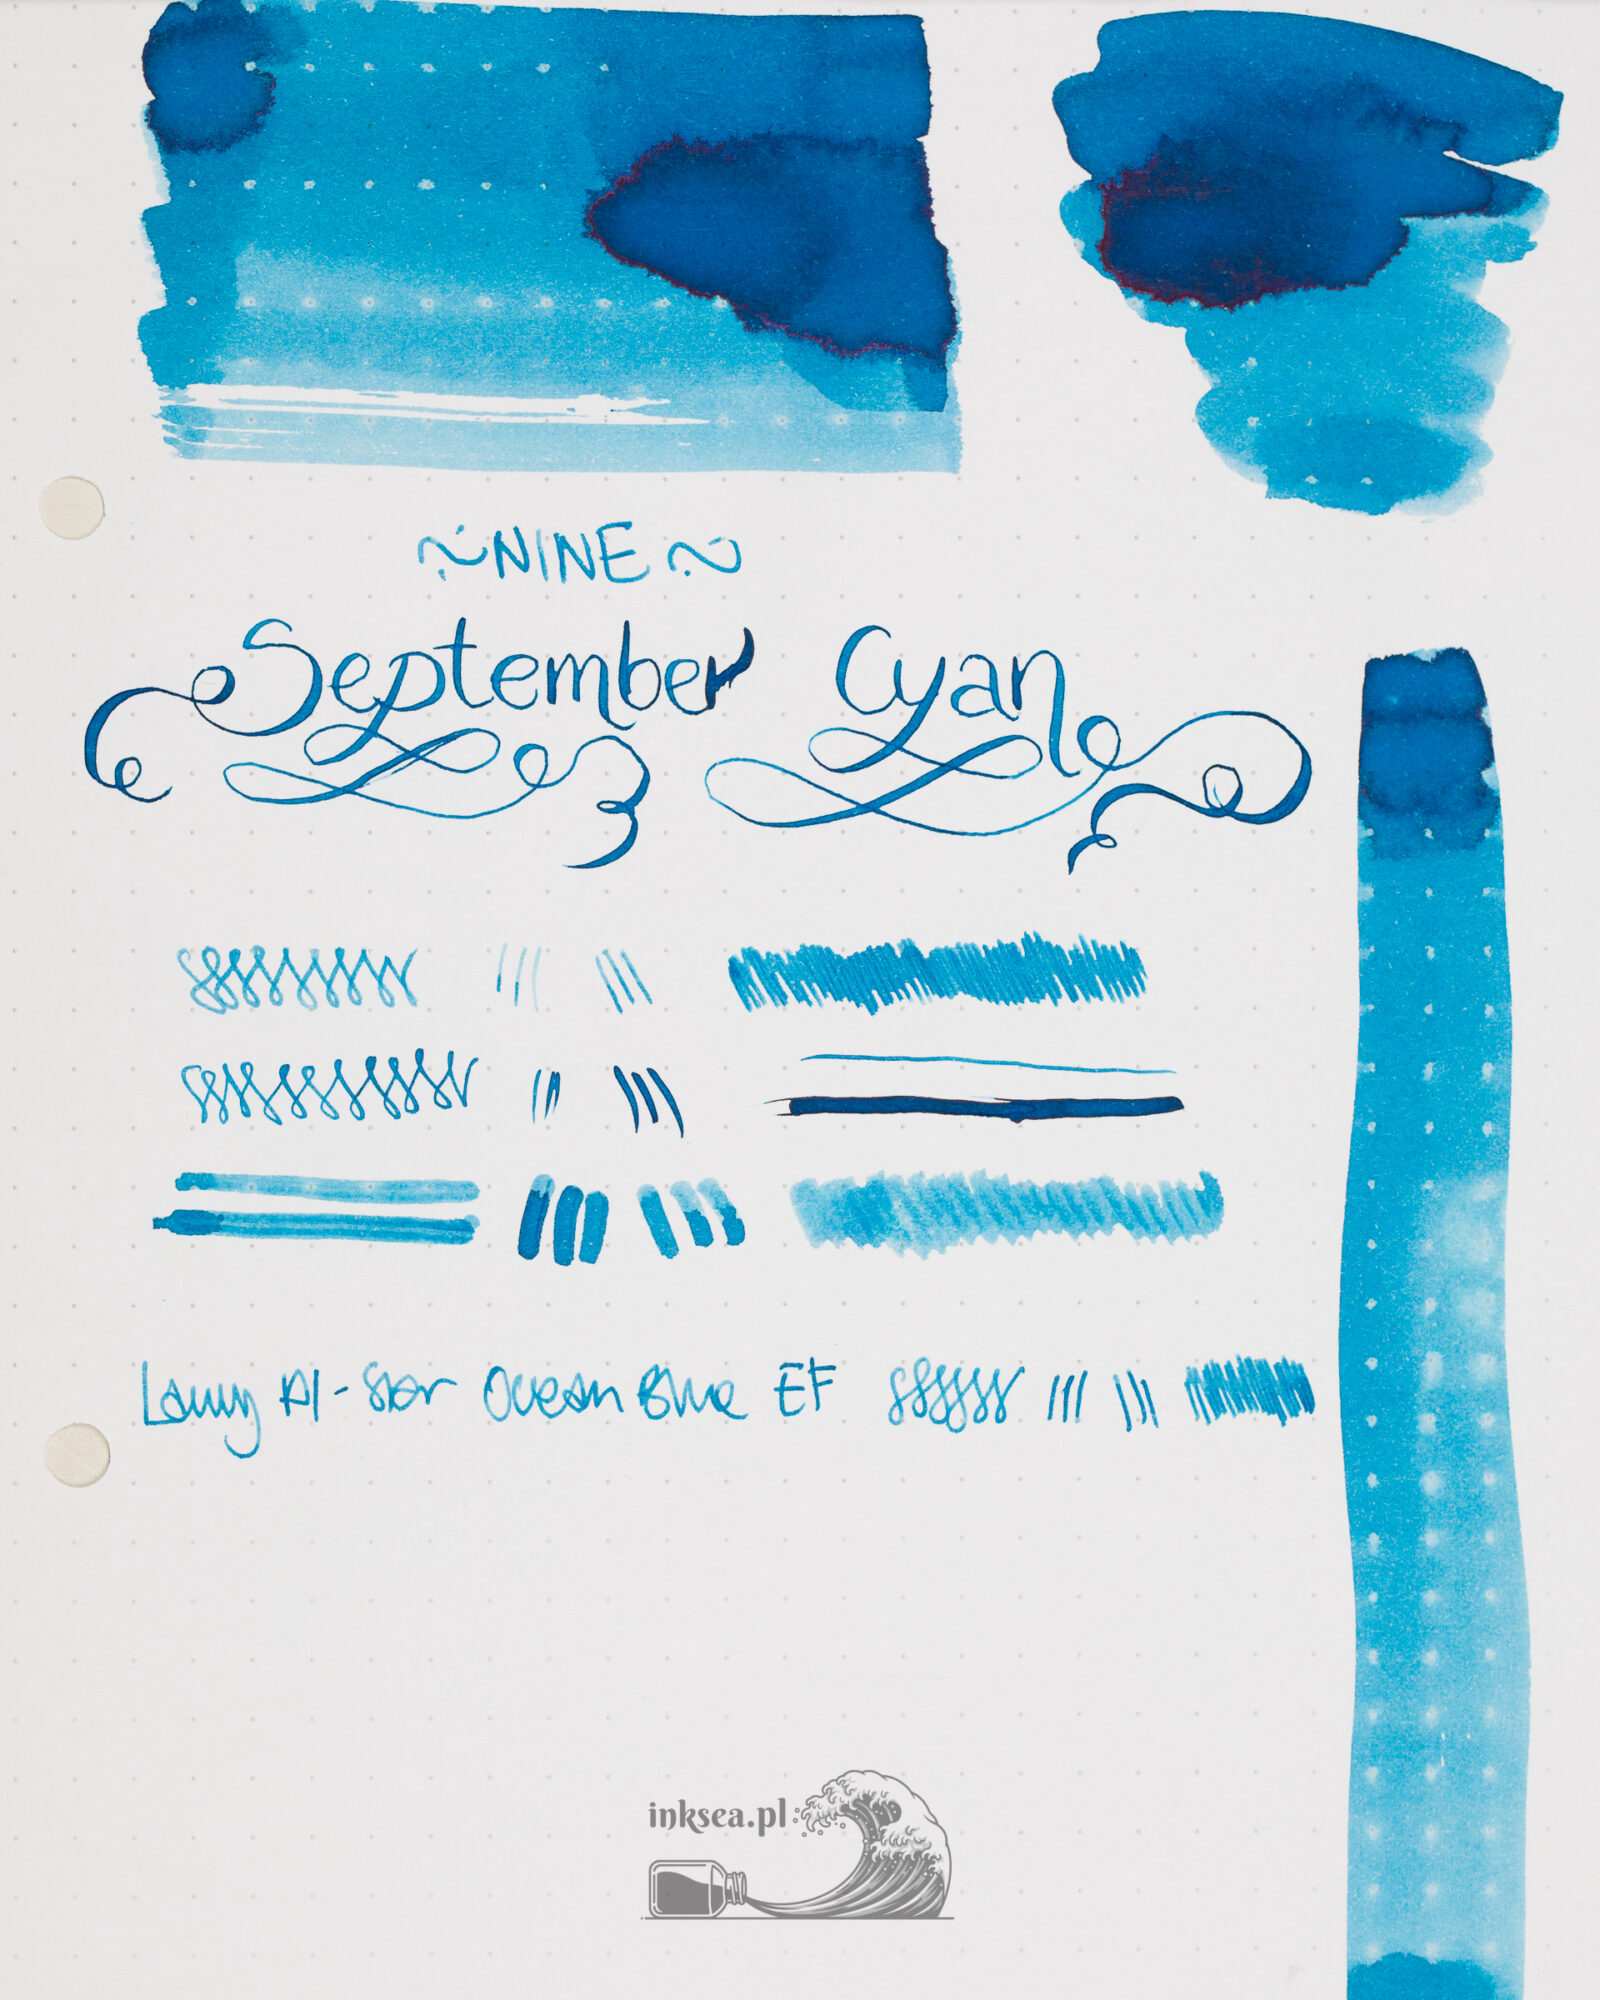 ~NINE~
September Cyan
Lamy Al-Star Ocean Blue EF
inksea.pl